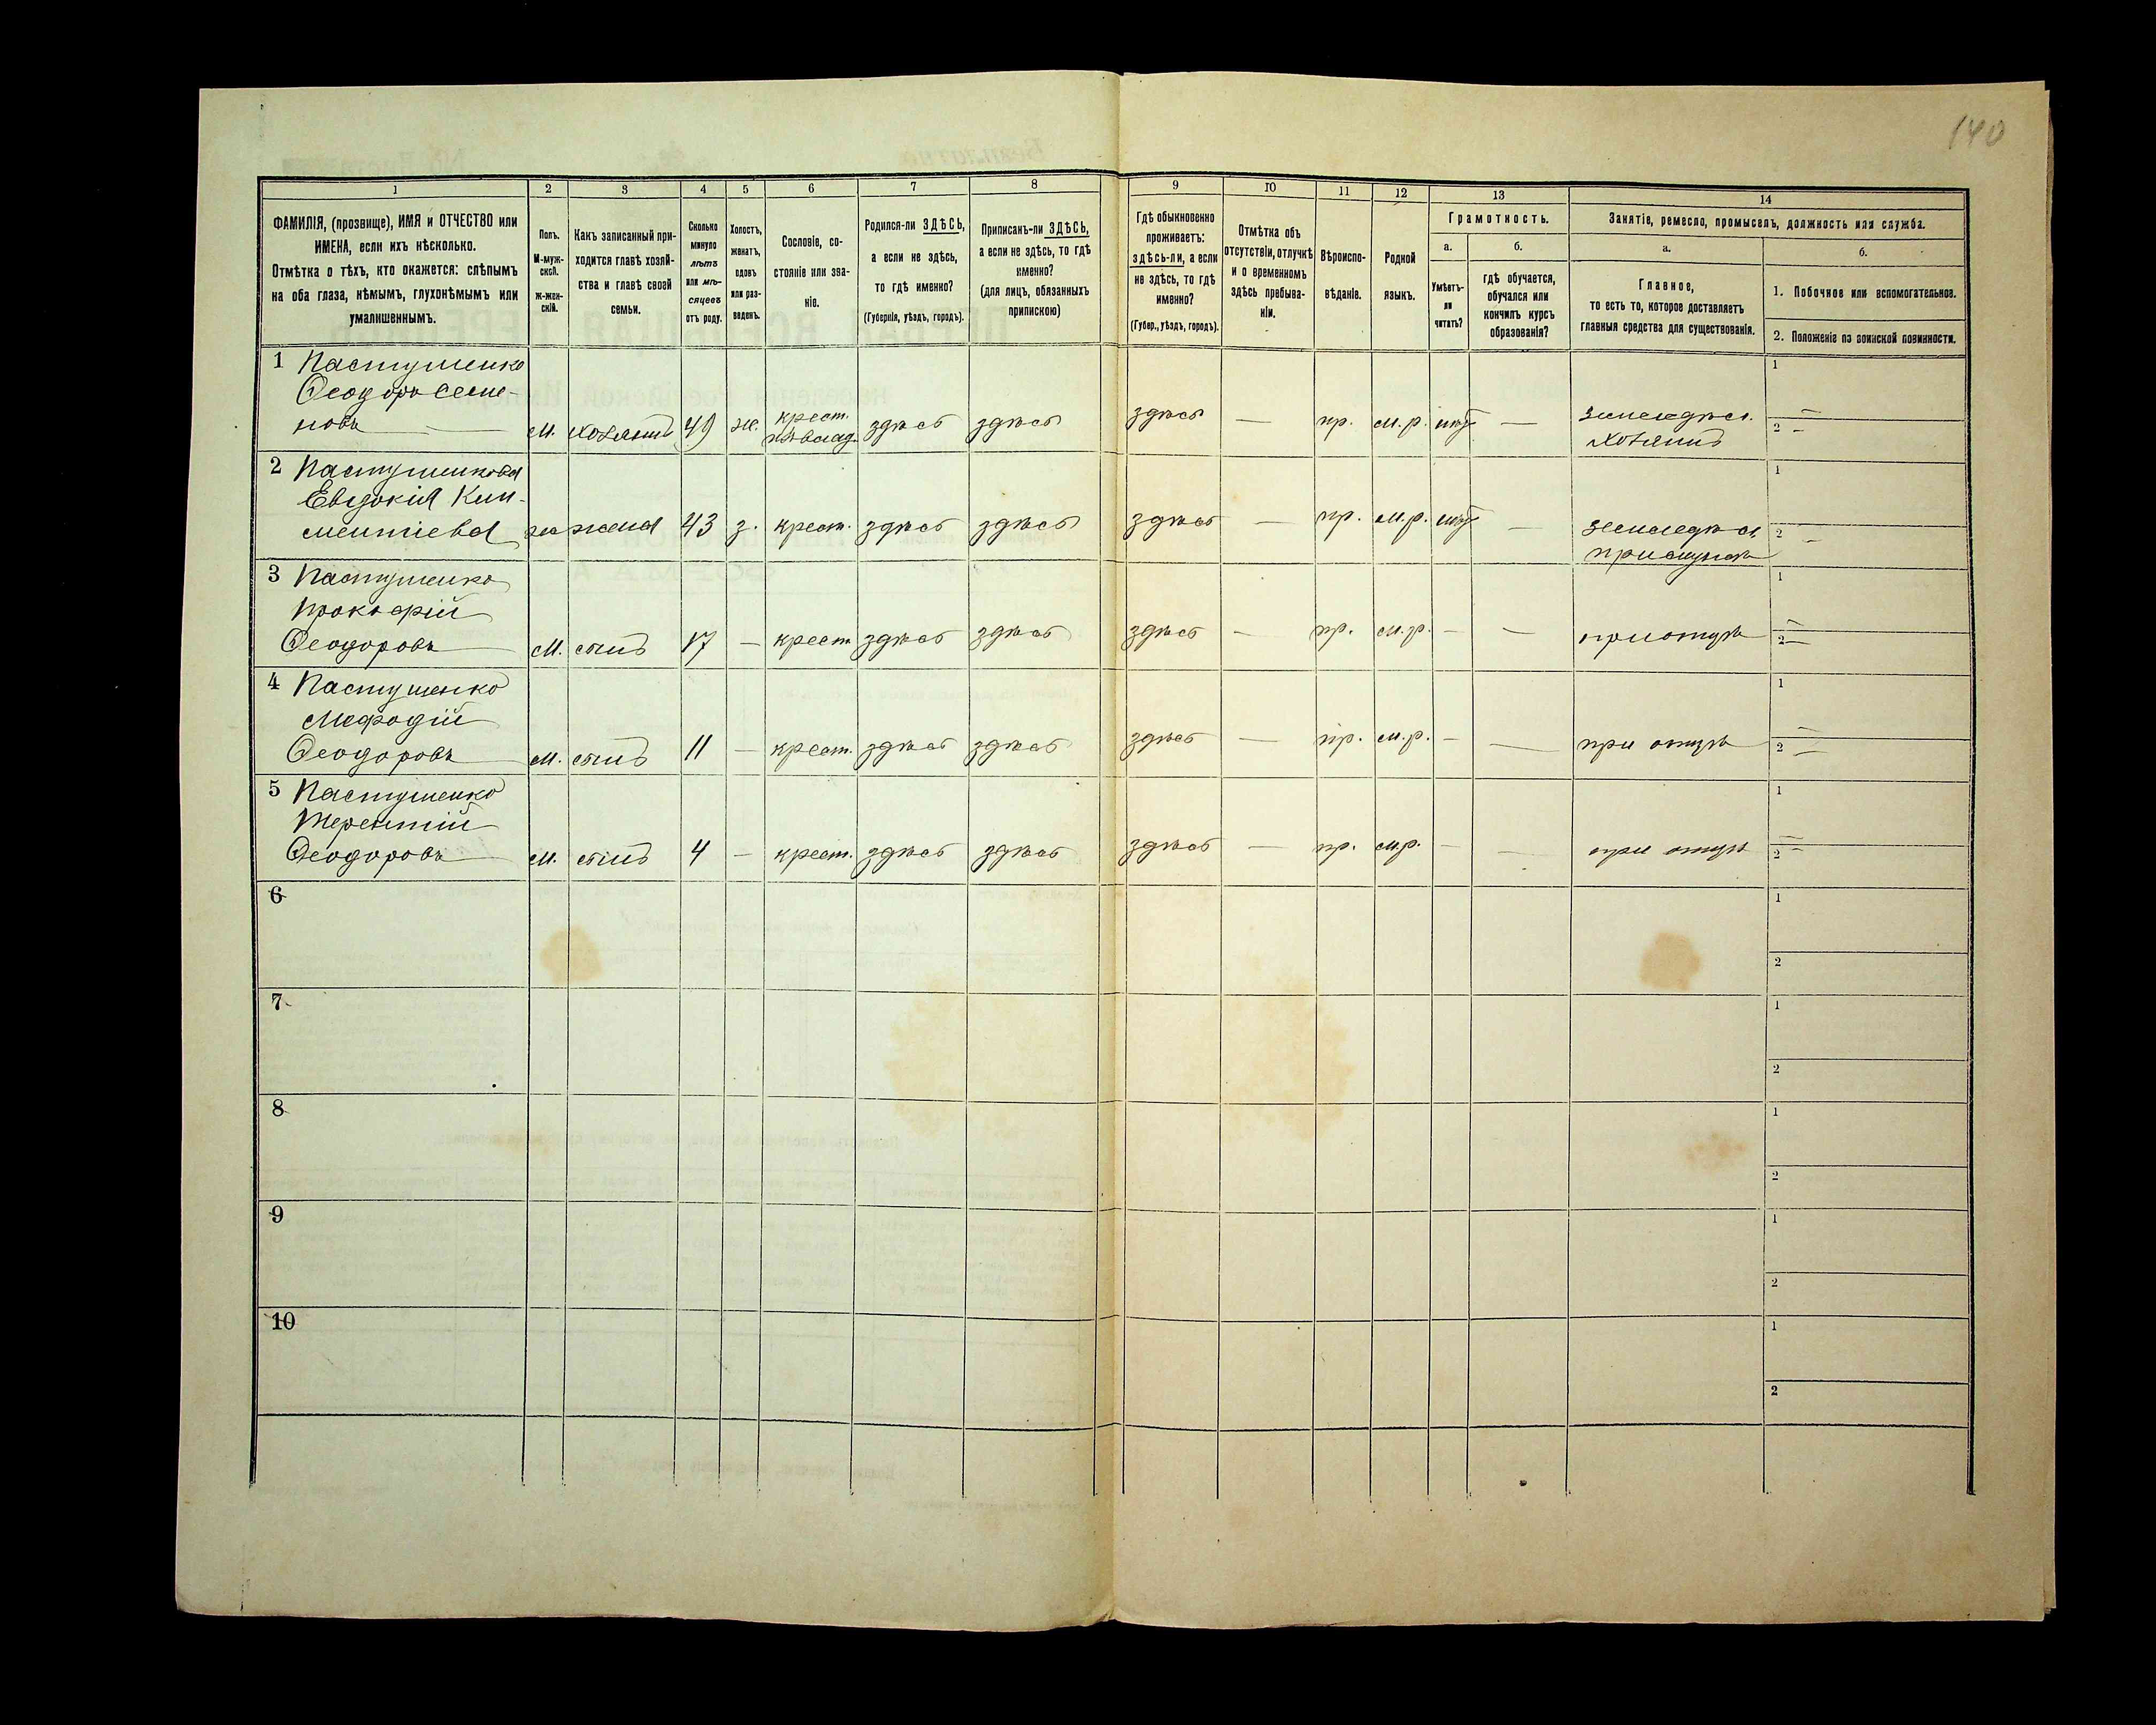 140
1 2 3 4 5 6 7 8 9 10 11 12 13 14
ФАМИЛІЯ, (прозвище), ИМЯ и ОТЧЕСТВО или
ИМЕНА, если ихъ нѣсколько.
Отмѣтка о тѣхъ, кто окажется: слѣпымъ
на оба глаза, нѣмымъ, глухонѣмымъ или
умалишеннымъ.
Полъ.
М-муж-
ской.
Ж-жен-
скій.
Какъ записанный при-
ходится главѣ хозяй-
ства и главѣ своей
семьи.
Сколько
минуло
лѣтъ
или мѣ-
сяцевъ
отъ роду.
Холостъ,
женатъ,
вдовъ
или раз-
веденъ.
Сословіе, со-
стояніе или зва-
ніе.
Родился-ли ЗДѢСЬ,
а если не здѣсь,
то гдѣ именно?
(Губернія, уѣздъ, городъ).
Приписанъ-ли ЗДѢСЬ,
а если не здѣсь, то гдѣ
именно?
(для лицъ, обязанныхъ
припискою)
Гдѣ обыкновенно
проживаетъ:
здѣсь-ли, а если
не здѣсь, то гдѣ
именно?
(Губер., уѣздъ, городъ).
Отмѣтка объ
отсутствіи, отлучкѣ
и о временномъ
здѣсь пребыва-
ніи.
Вѣроиспо-
вѣданіе.
Родной
языкъ.
Грамотность.
а. б.
Умѣетъ-
ли
читать?
гдѣ обучается,
обучался или
кончилъ курсъ
образованія?
Занятіе, ремесло, промыселъ, должность или служба.
а. б.
Главное,
то есть то, которое доставляетъ
главныя средства для существованія.
1. Побочное или вспомогательное.
2. Положеніе по воинской повинности.
1 Пастушенко
Ѳеодоръ Семе-
новъ — м. хозяинъ 49 ж. крест. здѣсь здѣсь здѣсь — пр. м.р. — земледѣл.
хозяинъ
1 —
2 —
2 Пастушенкова
Евдокія Кли-
ментіева ж жена 43 з. крест. здѣсь здѣсь здѣсь — пр. м.р. — земледѣл.
при мужѣ
1
2 —
3 Пастушенко
Прокофій
Ѳеодоровъ м. сынъ 17 — крест. здѣсь здѣсь здѣсь — пр. м.р. — — при отцѣ
1 —
2 —
4 Пастушенко
Мефодій
Ѳеодоровъ м. сынъ 11 — крест. здѣсь здѣсь здѣсь — пр. м.р. — — при отцѣ
1 —
2 —
5 Пастушенко
Терентій
Ѳеодоровъ м. сынъ 4 — крест. здѣсь здѣсь здѣсь — пр. м.р. — — при отцѣ
1 —
2 —
6 1
2
7 1
2
8 1
2
9 1
2
10 1
2